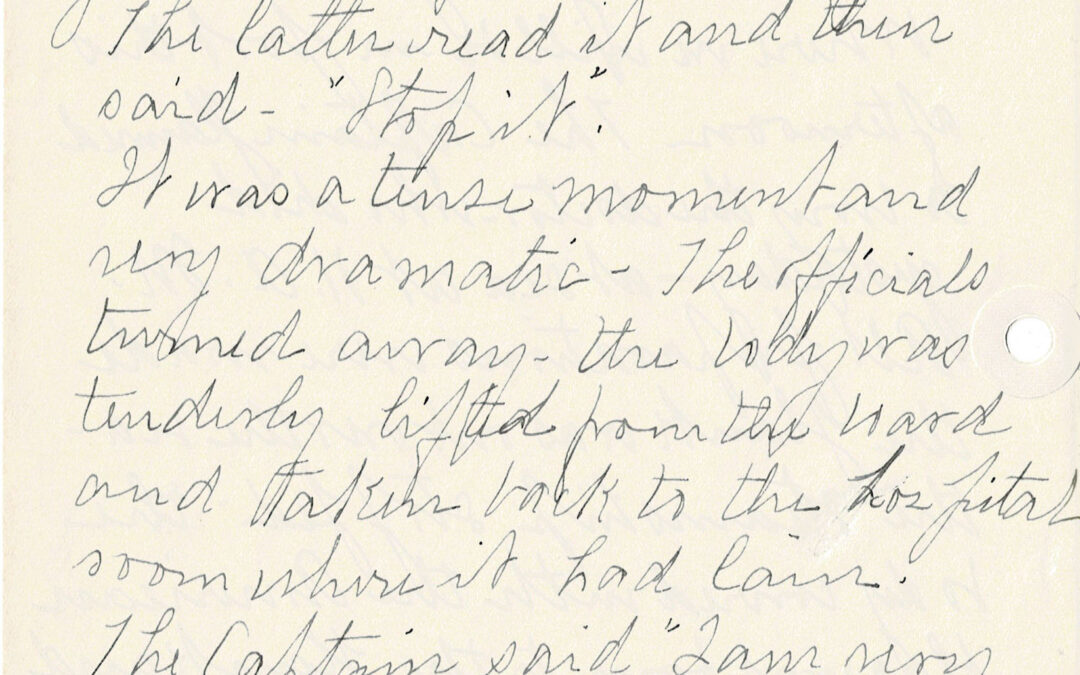 The latter read it and then
said - "Stop it".
It was a tense moment and
very dramatic - The officials
turned away - the body was
tenderly lifted from the board
and taken back to the hospital
room where it had lain.
The Captain said "I am very